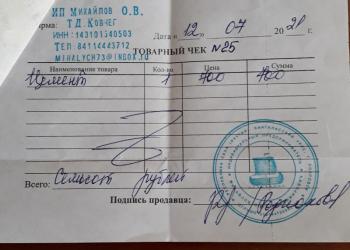 ИП Михайлов О.В.
Фирма: Т.Д. Ковчег
ИНН: 143101540503
Тел 84114443712
MIHALYCH73@INBOX.RU
Дата « 12 » 07 2021 г.
ТОВАРНЫЙ ЧЕК №25
Наименование товара Кол-во Цена Сумма
Цемент 1 700 700
Всего: Семьсот рублей
Подпись продавца: